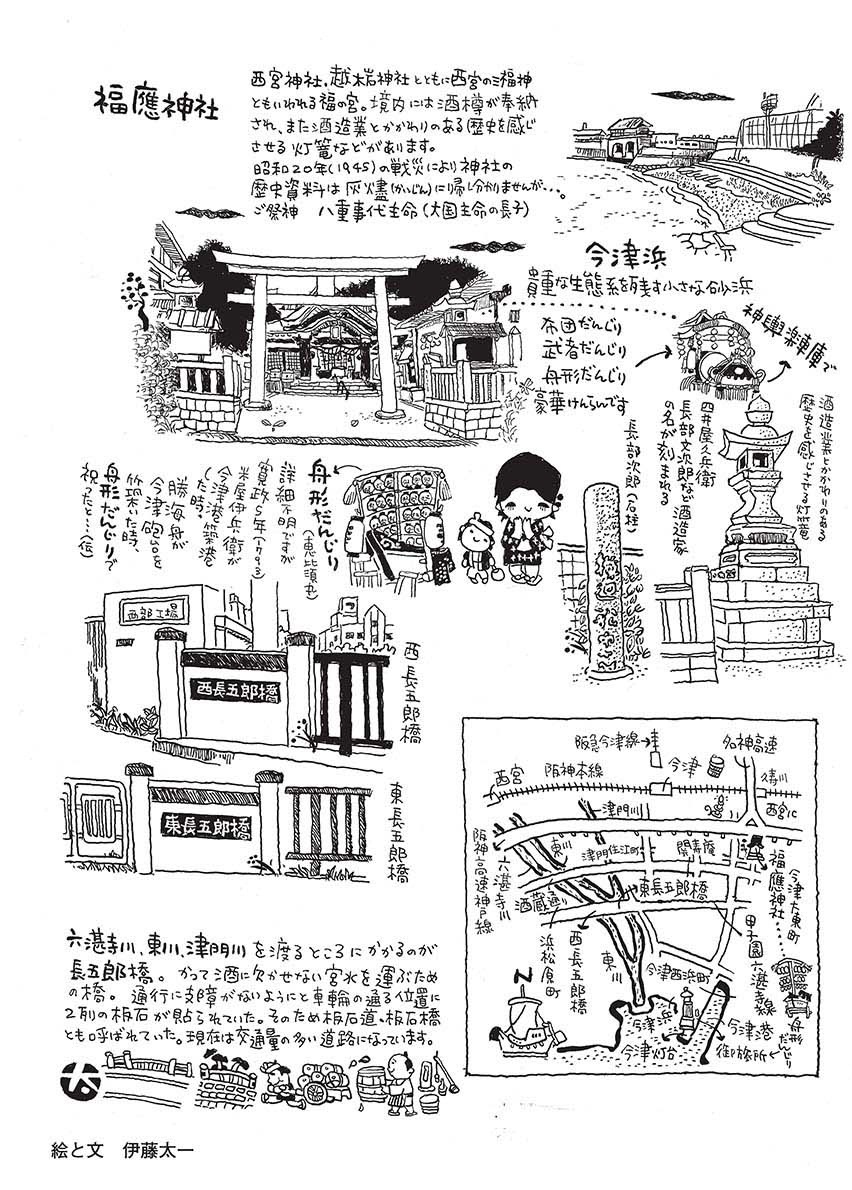 福應神社
西宮神社、越木岩神社とともに西宮の三福神
ともいわれる福の宮。境内には酒樽が奉納
され、また酒造業とかかわりのある歴史を感じ
させる灯篭などがあります。
昭和20年(1945)の戦災により神社の
歴史資料は灰燼(かいじん)に帰し分かりませんが…。
ご祭神 八重事代主命(大国主命の長子)
今津浜
貴重な生態系を残す小さな砂浜
布団だんじり
武者だんじり
舟形だんじり
豪華けんらんです
神輿楽車庫で
酒造業とかかわりのある
歴史を感じさせる灯篭
四井屋久兵衛
長部文次郎など酒造家
の名が刻まれる
長部次郎(石柱)
舟形だんじり
(恵比須丸)
詳細不明ですが
寛政5年(1793)
米屋伊兵衛が
今津港築港
した時、
勝海舟が
今津砲台を
築いた時、
舟形だんじりで
祝ったと…(伝)
西部工場
西長五郎橋
西長五郎橋
東長五郎橋
東長五郎橋
六湛寺川、東川、津門川を渡るところにかかるのが
長五郎橋。かつて酒に欠かせない宮水を運ぶため
の橋。通行に支障がないようにと車輪の通る位置に
2列の板石が貼られていた。そのため板石道、板石橋
とも呼ばれていた。現在は交通量の多い道路になっています。
阪急今津線
今津
名神高速
西宮
阪神本線
久寿川
西宮に
津門川
東川
津門住江町
開寿庵
福應神社
今津大東町
阪神高速神戸線
六湛寺川
酒蔵通り
東長五郎橋
浜松原町
西長五郎橋
東川
甲子園六湛寺線
今津西浜町
N
今津浜
今津灯台
今津港
御旅所
舟形だんじり
太
絵と文 伊藤太一